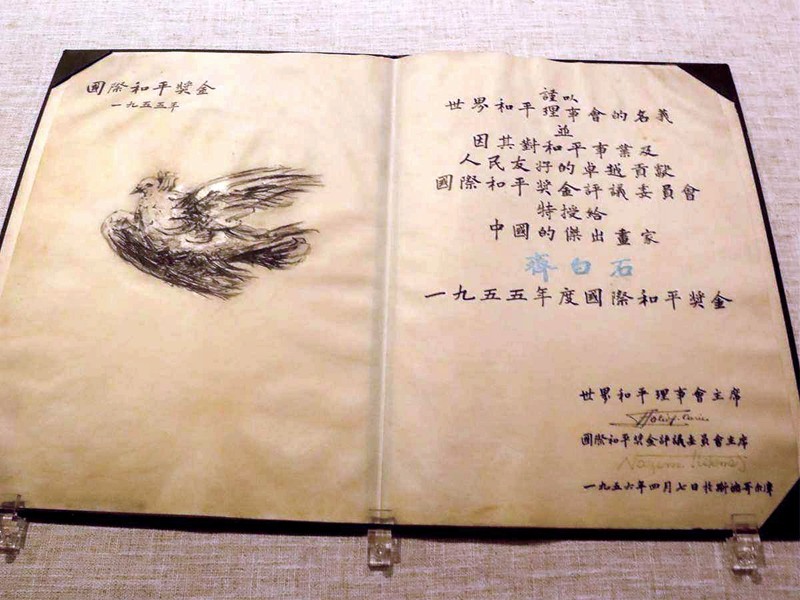 國際和平獎金
一九五五年
謹以
世界和平理事會的名義
並
因其對和平事業及
人民友好的卓越貢獻
國際和平奬金評議委員會
特授給
中國的傑出畫家
齊白石
一九五五年度國際和平奬金
世界和平理事會主席
國際和平奬金評議委員會主席
一九五六年四月七日於斯德哥尔摩